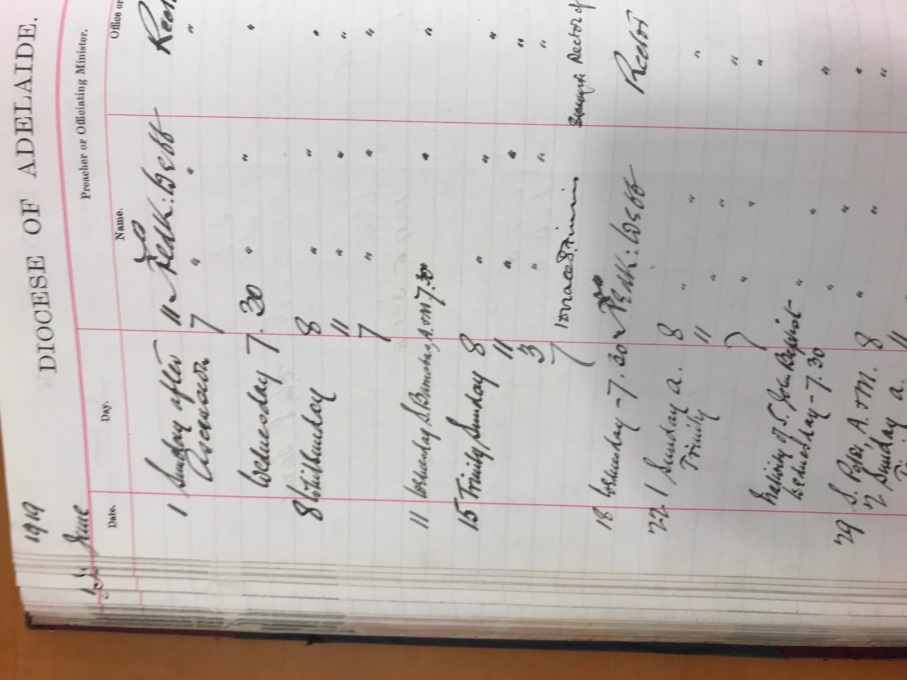 DIOCESE OF ADELAIDE.
1919
June
Date. Day. Name. Preacher or Officiating Minister. Office or
1 Sunday after 11 Fredk: Webb Rect
Ascension 7 " " "
Wednesday 7.30 " " "
8 Whitsunday 8 " " "
11 " " "
7 " " "
11 Wednesday S. Barnabas, A. & M. 7.30 " "
15 Trinity Sunday 8 " " "
11 " " "
3 " " "
7 Rector of
18 Wednesday - 7.30 Fredk: Webb Rector
22 1 Sunday a. 8 " " "
Trinity 11 " " "
7 " " "
Nativity of S. John Baptist
Wednesday - 7.30 " " "
29 S. Peter, A. & M. 8 " " "
2 Sunday a. 11 " " "